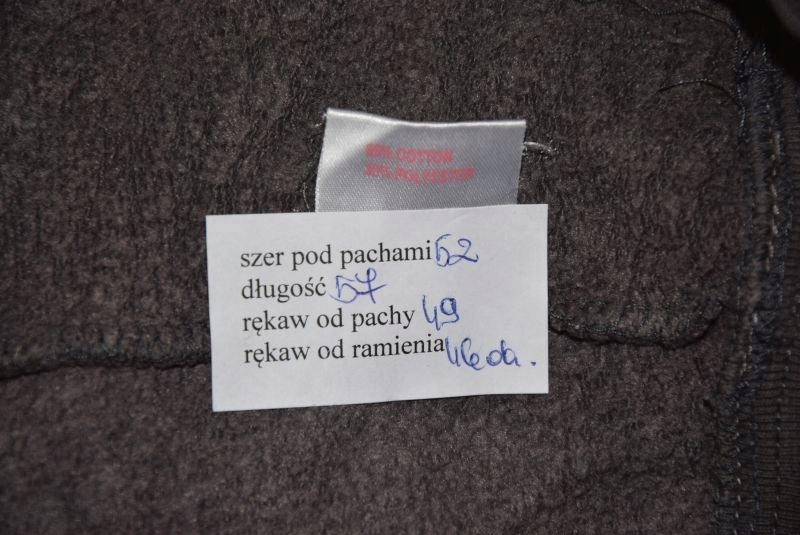 COTTON
POLYESTER
szer pod pachami 52
długość 57
rękaw od pachy 49
rękaw od ramienia